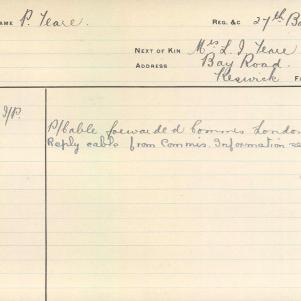 NAME P. Teare. REG. &C 27th Ba
NEXT OF KIN Mrs L. J. Teare
ADDRESS Bay Road.
Keswick F
I/P. P/Cable forwarded Commis London
Reply cable from Commis. Information re